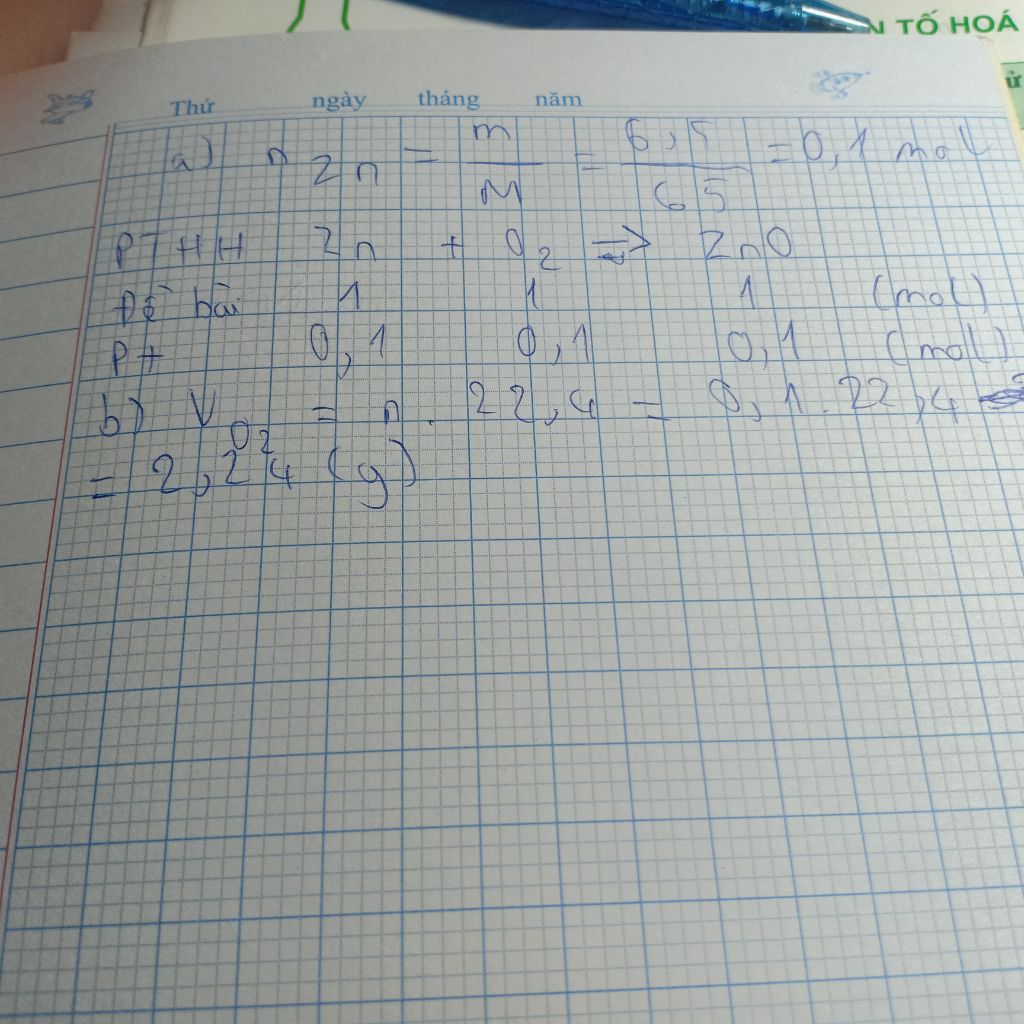 N TỐ HOÁ
ử
Thứ ngày tháng năm
a) n Zn = m/M = 6,5/65 = 0,1 mol
PTHH Zn + O2 ⇒ ZnO
Đề bài 1 1 1 (mol)
P+ 0,1 0,1 0,1 (mol)
b) V O2 = n. 22,4 = 0,1.22,4
= 2,24 (g)